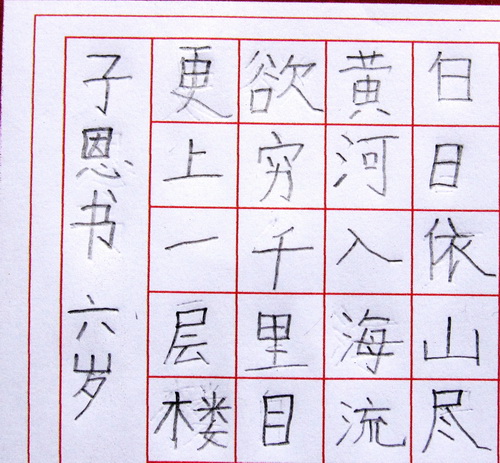 白日依山尽
黄河入海流
欲穷千里目
更上一层楼
子恩书 六岁